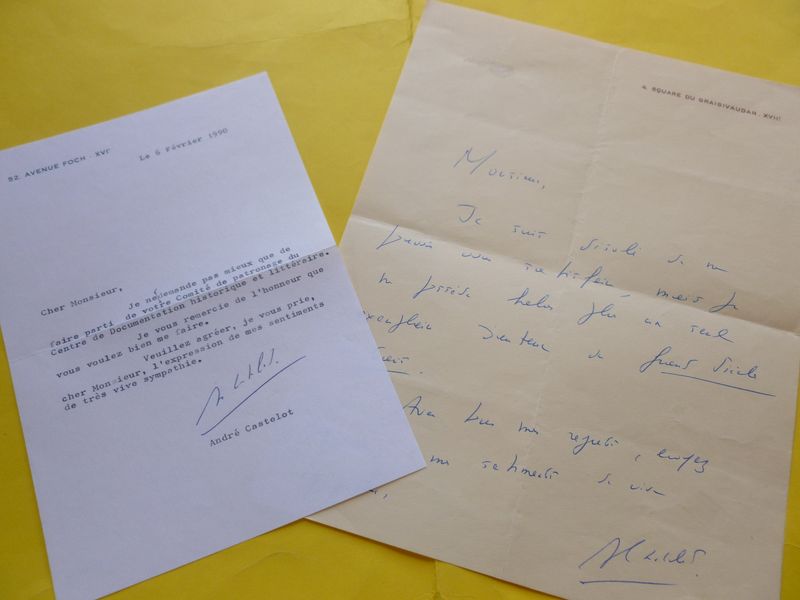 92. AVENUE FOCH - XVIᵉ
Le 6 Février 1990
Cher Monsieur,
Je ne demande pas mieux que de
faire parti de votre Comité de patronage du
Centre de Documentation historique et littéraire.
Je vous remercie de l'honneur que
vous voulez bien me faire.
Veuillez agréer, je vous prie,
cher Monsieur, l'expression de mes sentiments
de très vive sympathie.
André Castelot
4. SQUARE DU GRAISIVAUDAN. XVIIᵉ
Monsieur,
Je suis désolé de ne
pouvoir vous satisfaire, mais je
ne possède hélas plus un seul
exemplaire
Grand Siècle
Avec tous mes regrets, croyez
mes sentiments de vive